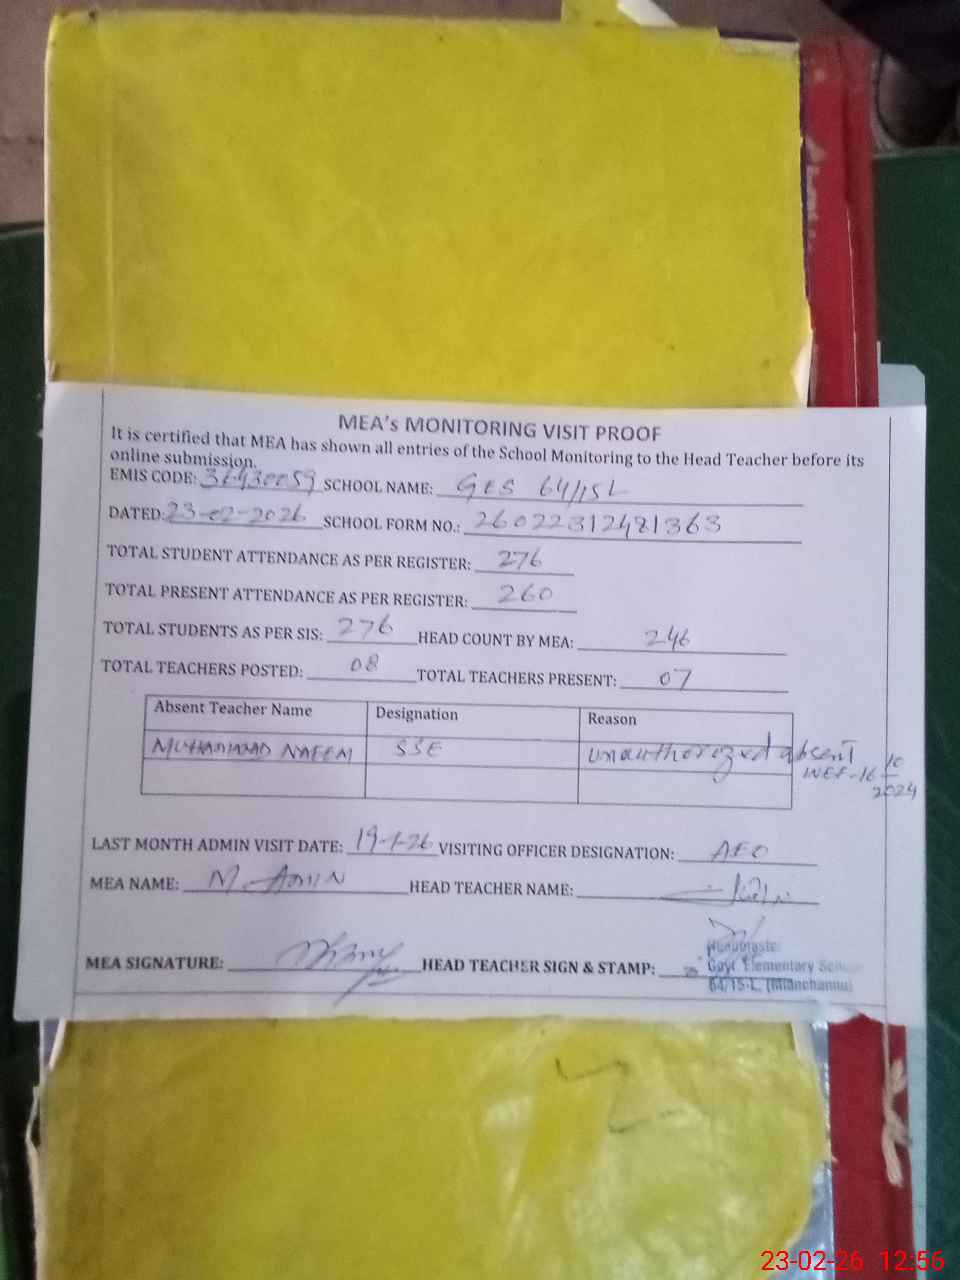 MEA's MONITORING VISIT PROOF
It is certified that MEA has shown all entries of the School Monitoring to the Head Teacher before its
online submission.
EMIS CODE: SCHOOL NAME: GES 64/15L
DATED: 23-02-2026 SCHOOL FORM NO.: 26022312481363
TOTAL STUDENT ATTENDANCE AS PER REGISTER: 276
TOTAL PRESENT ATTENDANCE AS PER REGISTER: 260
TOTAL STUDENTS AS PER SIS: 276 HEAD COUNT BY MEA: 246
TOTAL TEACHERS POSTED: 08 TOTAL TEACHERS PRESENT: 07
Absent Teacher Name Designation Reason
MUHAMMAD NAEEM SSE unauthorized absent
WEF-16 10
2024
LAST MONTH ADMIN VISIT DATE: 19-1-26 VISITING OFFICER DESIGNATION: AEO
MEA NAME: M-AMIN HEAD TEACHER NAME:
MEA SIGNATURE: HEAD TEACHER SIGN & STAMP:
Govt. Elementary
64/15-L, (Mianchannu)
23-02-26 12:56